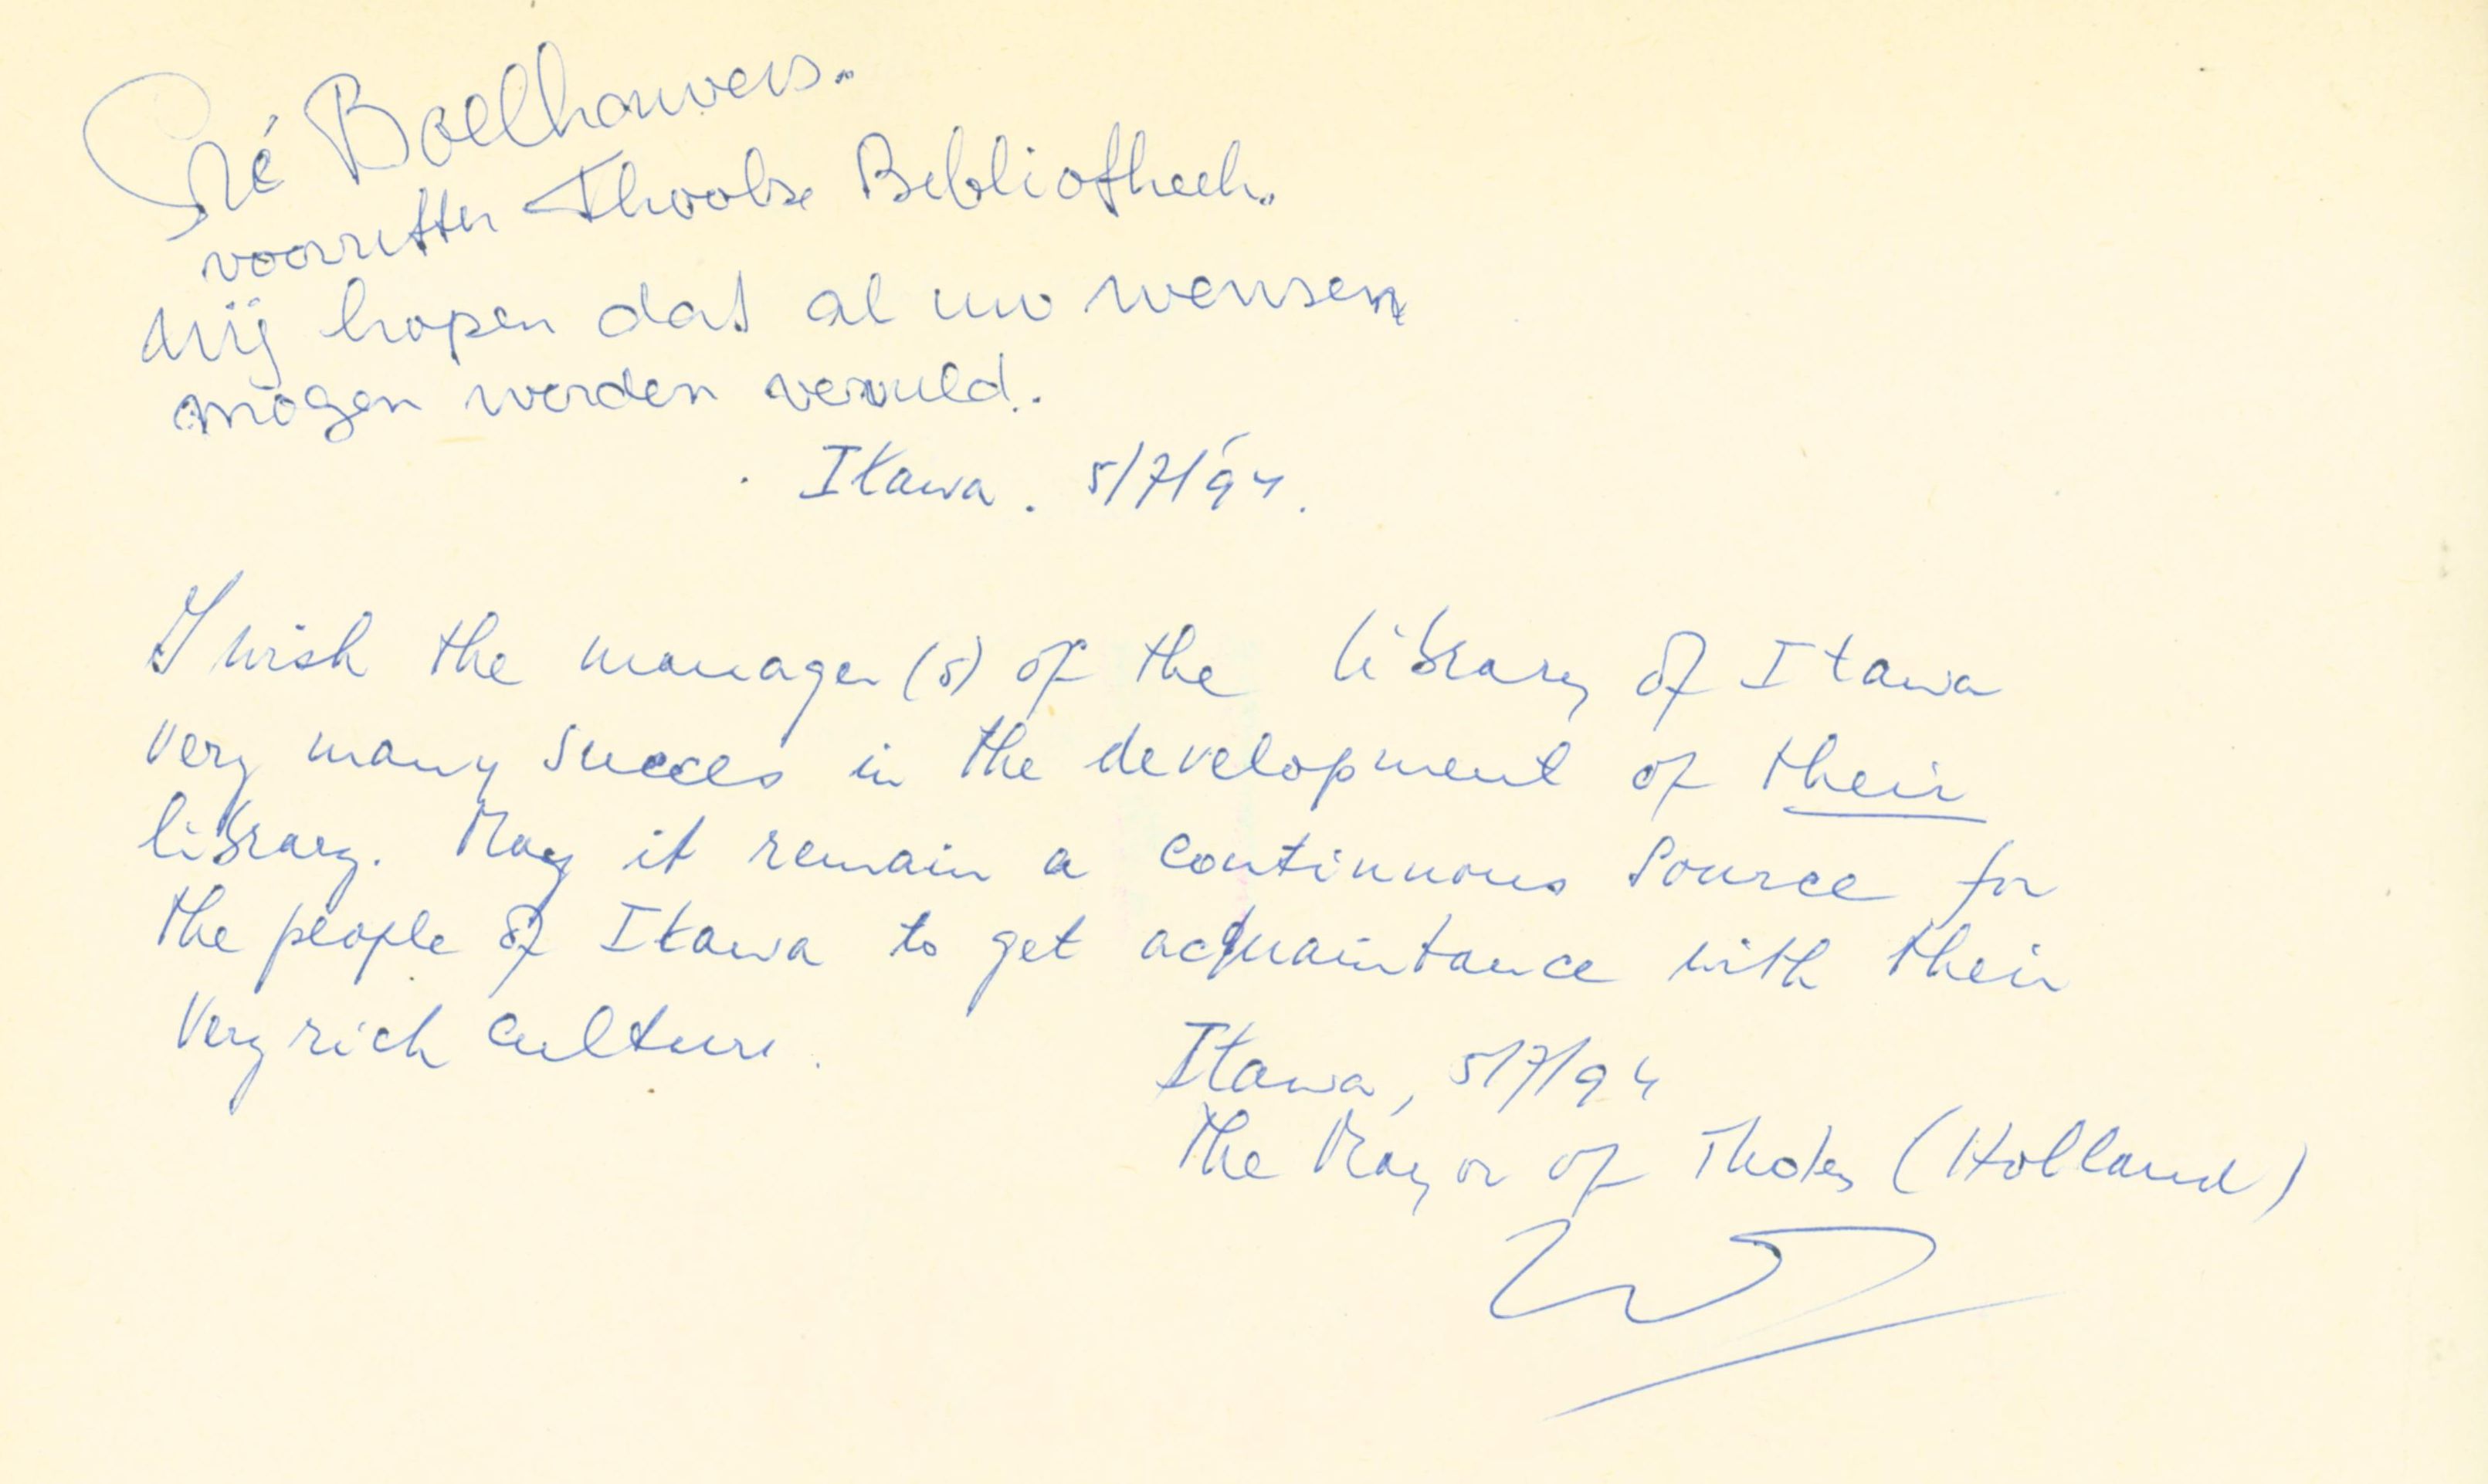 Boelhouwers.
voorzitter Thoolse Bibliotheek.
Wij hopen dat al uw wensen
mogen worden vervuld.
Itawa. 5/7/'94.
I wish the manager(s) of the library of Itawa
very many succes in the development of their
library. May it remain a continuous source for
the people of Itawa to get acquaintance with their
very rich culture.
Itawa, 5/7/94
The Mayor of Tholen (Holland)